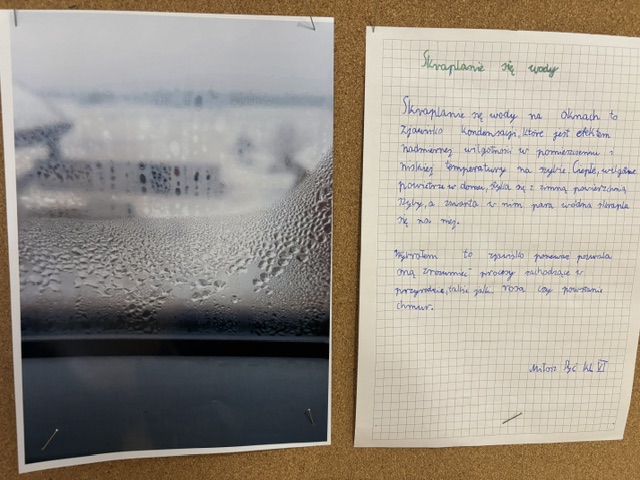 Skraplanie się wody
Skraplanie się wody na oknach to
zjawisko kondensacji, które jest efektem
nadmiernej wilgotności w pomieszczeniu i
niskiej temperatury na szybie. Ciepłe, wilgotne
powietrze w domu, styka się z zimną powierzchnią
szyby, a zawarta w nim para wodna skrapla
się na niej.
Wybrałem to zjawisko ponieważ pozwala
ono zrozumieć procesy zachodzące w
przyrodzie, takie jak rosa czy powstanie
chmur.
Miłosz kl. VI